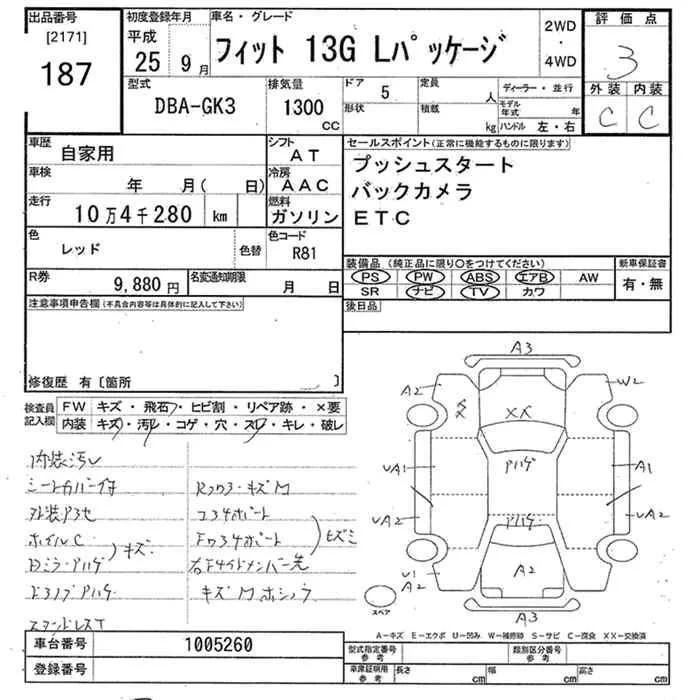 出品番号
[2171]
187
初度登録年月
平成
25 9月
車名・グレード
フィット 13G Lパッケージ
2WD
・
4WD
評価点
3
外装 内装
C C
型式
DBA-GK3
排気量
1300
CC
ドア 5
形状
定員 人
積載 kg
ディーラー・並行
モデル年式 年
ハンドル 左・右
車歴
自家用
シフト
AT
車検
年 月( 日)
冷房
AAC
走行
10万4千280 km
燃料
ガソリン
色
レッド
色替
色コード
R81
R券
9,880円
名変通知期限
月 日
セールスポイント(正常に機能するものに限ります)
プッシュスタート
バックカメラ
ETC
装備品(純正品に限り〇をつけてください)
PS PW ABS エアB AW
SR ナビ TV カワ
新車保証書
有・無
後日品
注意事項申告欄(不具合内容等は具体的に記入して下さい)
修復歴 有〔箇所 〕
検査員記入欄
FW キズ・飛石・ヒビ割・リペア跡・×要
内装 キズ・汚レ・コゲ・穴・スレ・キレ・破レ
内装汚レ
シートカバー付
ホイルC
キズ
Dミラーアハゲ
キズM
A3
A2
W2
XX
アハゲ
UA1
A1
UA2
UA2
アハゲ
A2
U1
A2
A2
A3
スペア
A-キズ E-エクボ U-凹み W-補修跡 S-サビ C-腐食 XX-交換済
車台番号 1005260
登録番号
型式指定番号 参考
類別区分番号 参考
車庫証明用 参考
長さ cm 幅 cm 高さ cm